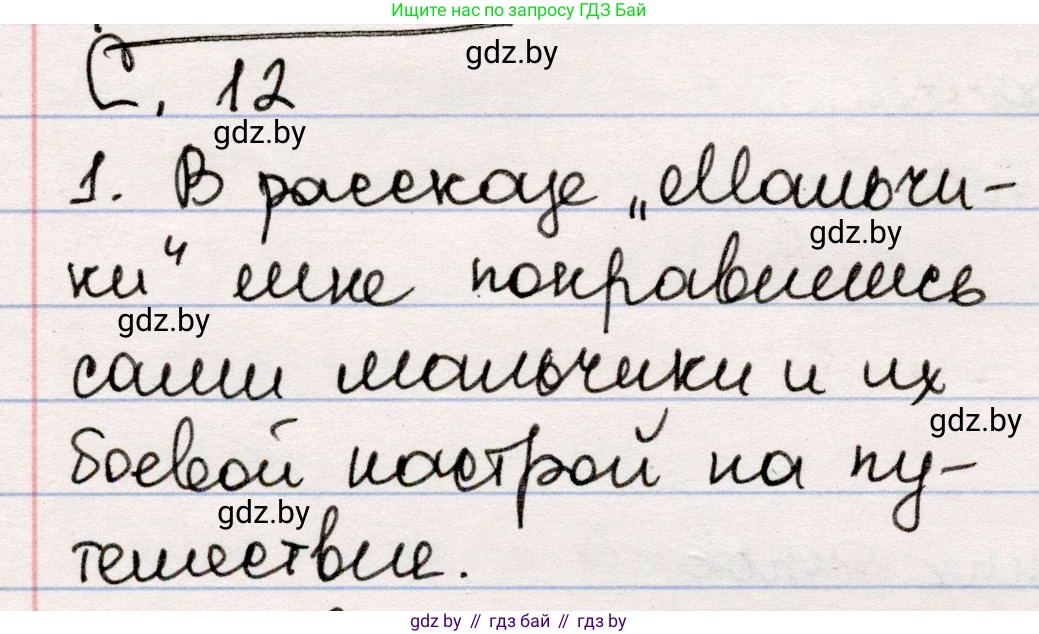 Ищите нас по запросу ГДЗ Бай
gdz.by
С. 12
gdz.by
1. В рассказе „Мальчи-
gdz.by
ки“ мне понравились
gdz.by
сами мальчики и их
gdz.by
боевой настрой на пу-
gdz.by
тешествие.
gdz.by // гдз бай // gdz.by